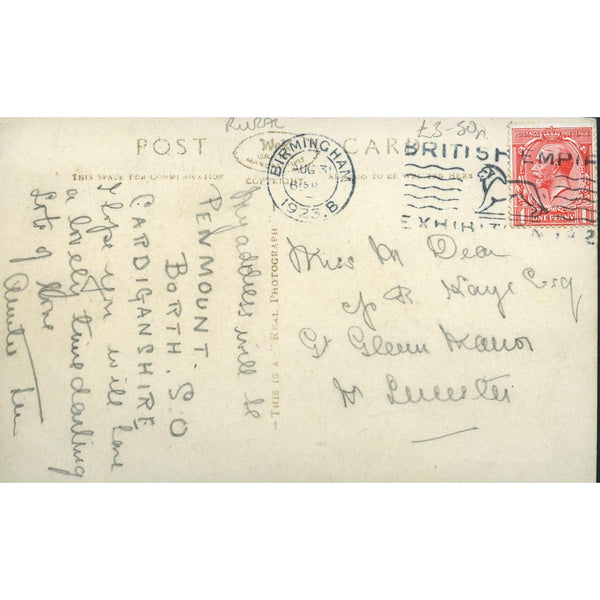 RURAL
£3-50p
POST CARD
THIS SPACE FOR COMMUNICATION
COPYRIGHT
ADDRESS TO BE WRITTEN HERE
BIRMINGHAM
AUG 3
1923
B
BRITISH EMPIRE
EXHIBITI
POSTAGE REVENUE
ONE PENNY
My address will be
PENMOUNT.
BORTH. S.O
CARDIGANSHIRE
I hope you will have
a lovely time darling
Lots of love
Auntie
THIS IS A "REAL PHOTOGRAPH"
Miss M Dear
c/o B Kaye Esq
Gt Glenn Manor
Nr Leicester